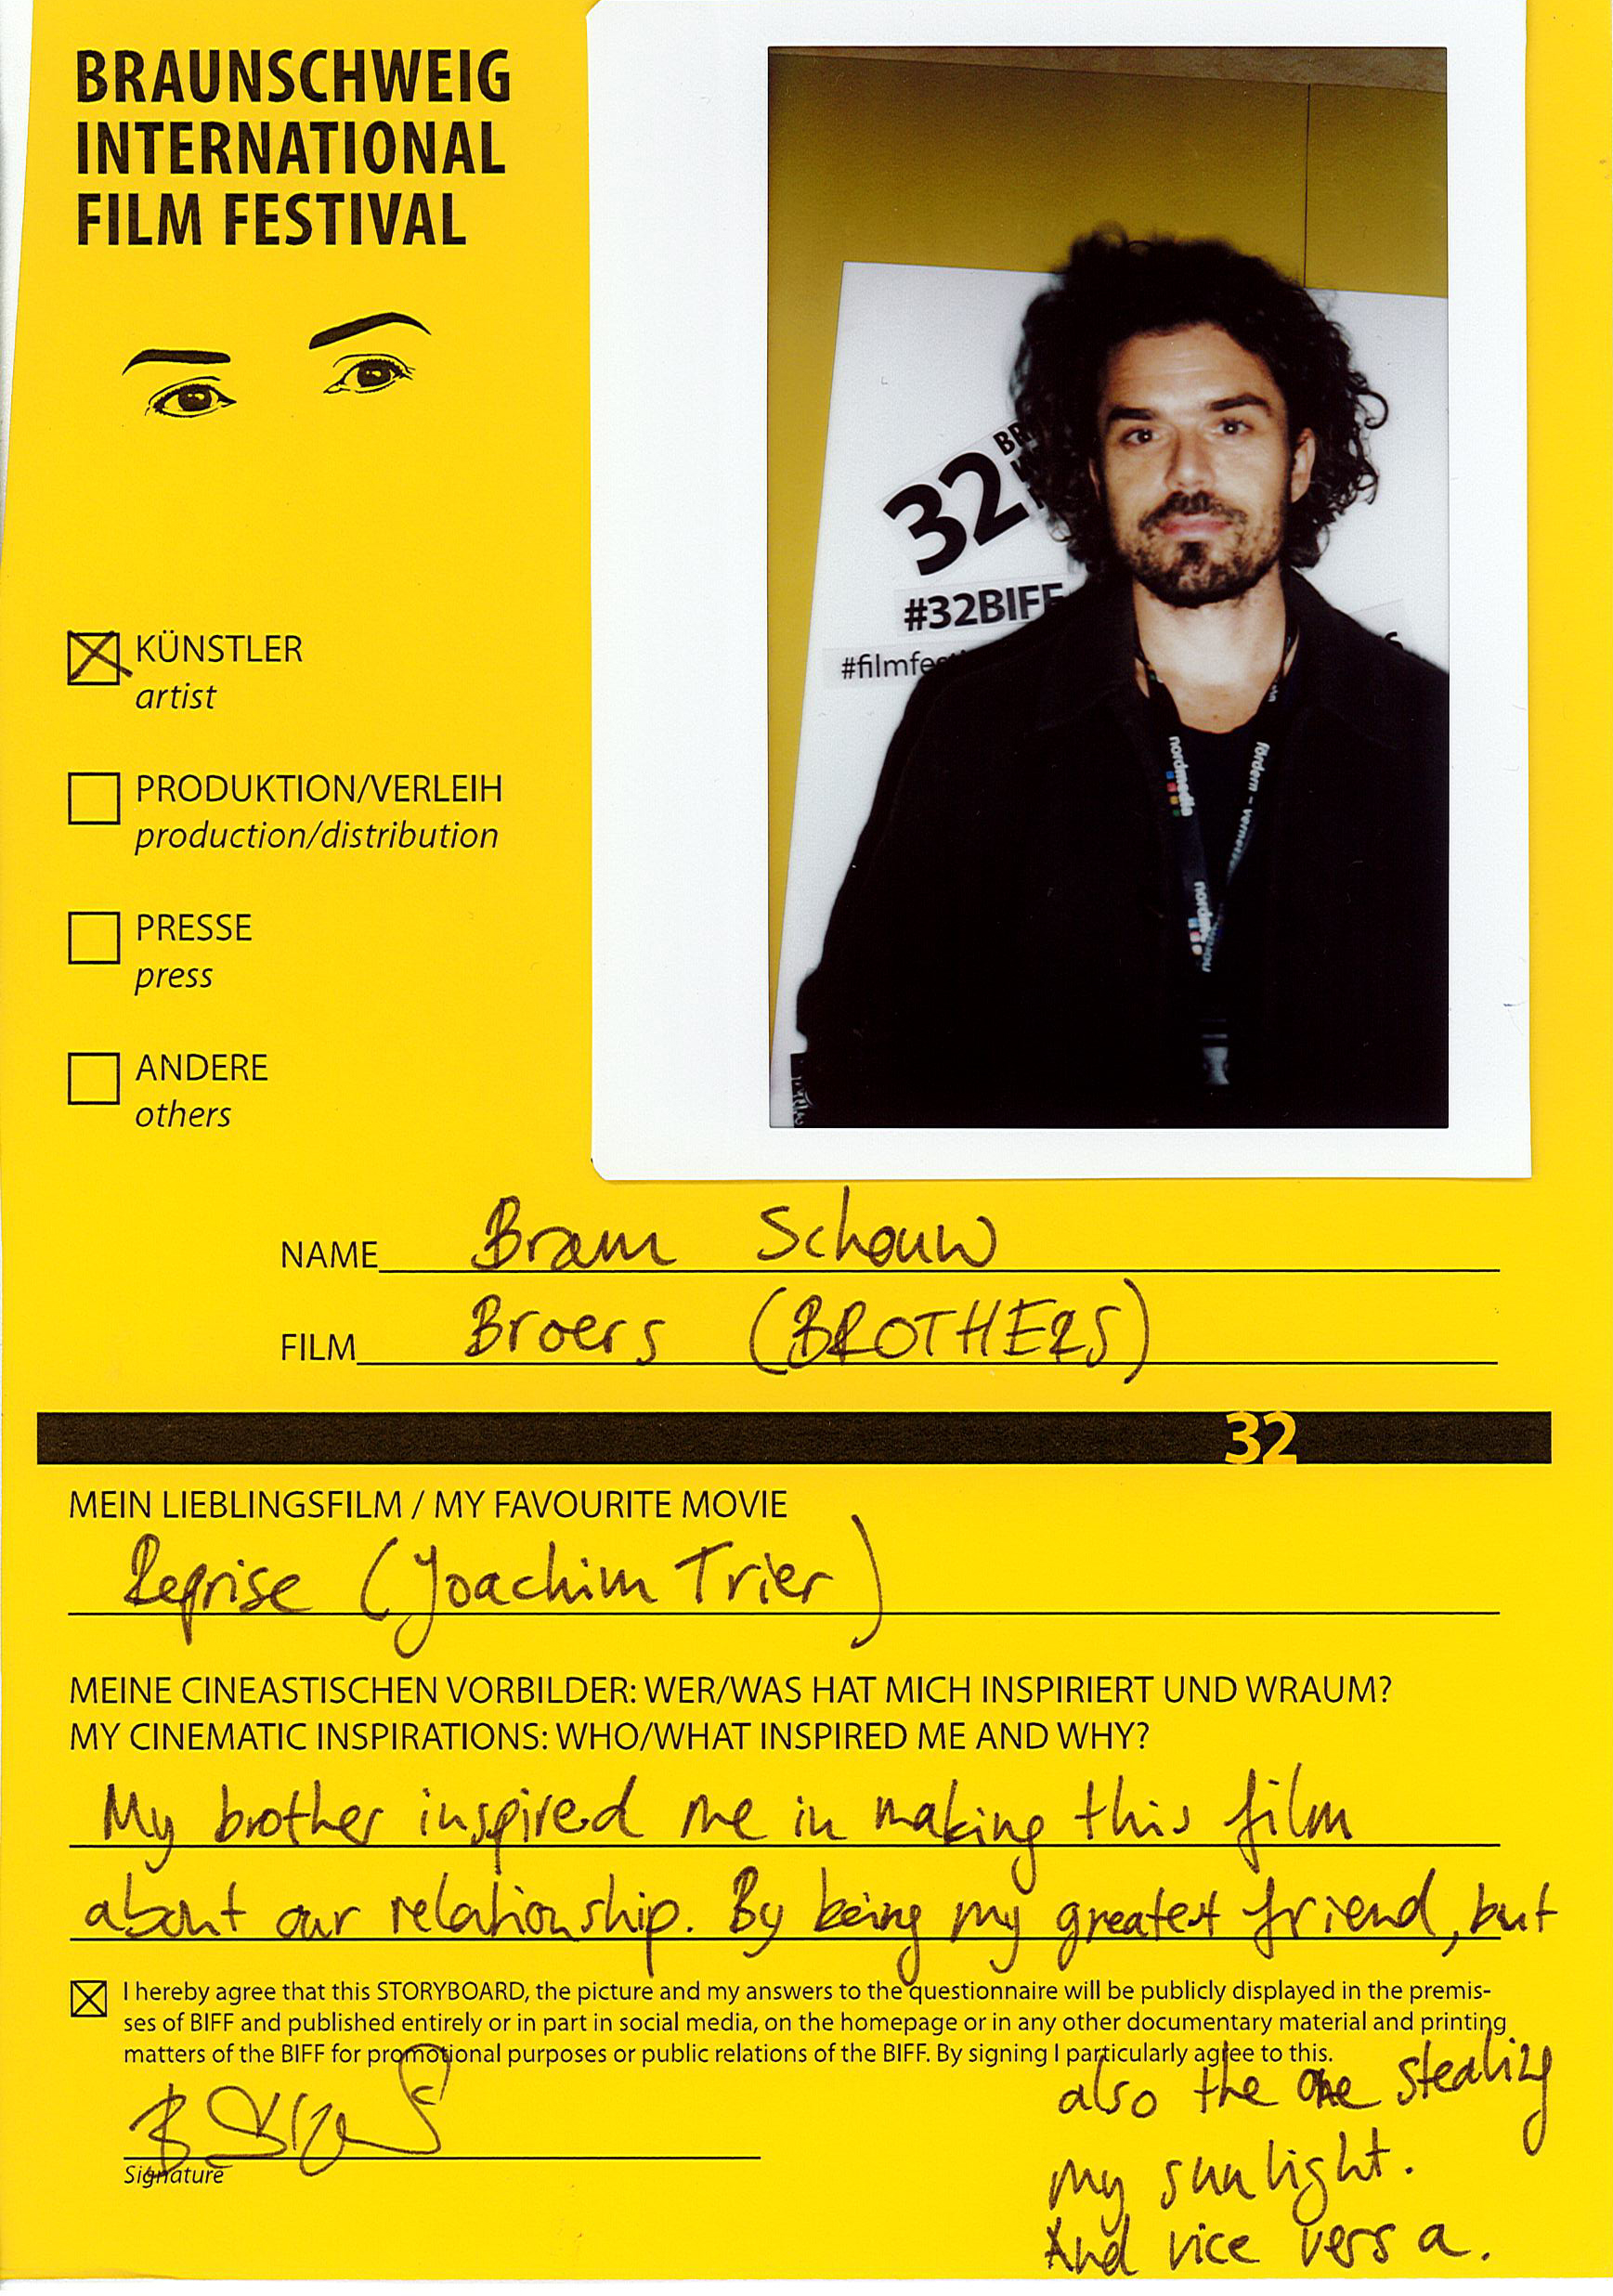 BRAUNSCHWEIG
INTERNATIONAL
FILM FESTIVAL
32
#32BIFF
nordmedia
KÜNSTLER
artist
PRODUKTION/VERLEIH
production/distribution
PRESSE
press
ANDERE
others
NAME Bram Schouw
FILM Broers (BROTHERS)
32
MEIN LIEBLINGSFILM / MY FAVOURITE MOVIE
Reprise (Joachim Trier)
MEINE CINEASTISCHEN VORBILDER: WER/WAS HAT MICH INSPIRIERT UND WRAUM?
MY CINEMATIC INSPIRATIONS: WHO/WHAT INSPIRED ME AND WHY?
My brother inspired me in making this film
about our relationship. By being my greatest friend, but
I hereby agree that this STORYBOARD, the picture and my answers to the questionnaire will be publicly displayed in the premis-
ses of BIFF and published entirely or in part in social media, on the homepage or in any other documentary material and printing
matters of the BIFF for promotional purposes or public relations of the BIFF. By signing I particularly agree to this.
also the one stealing
my sunlight.
And vice versa.
Signature